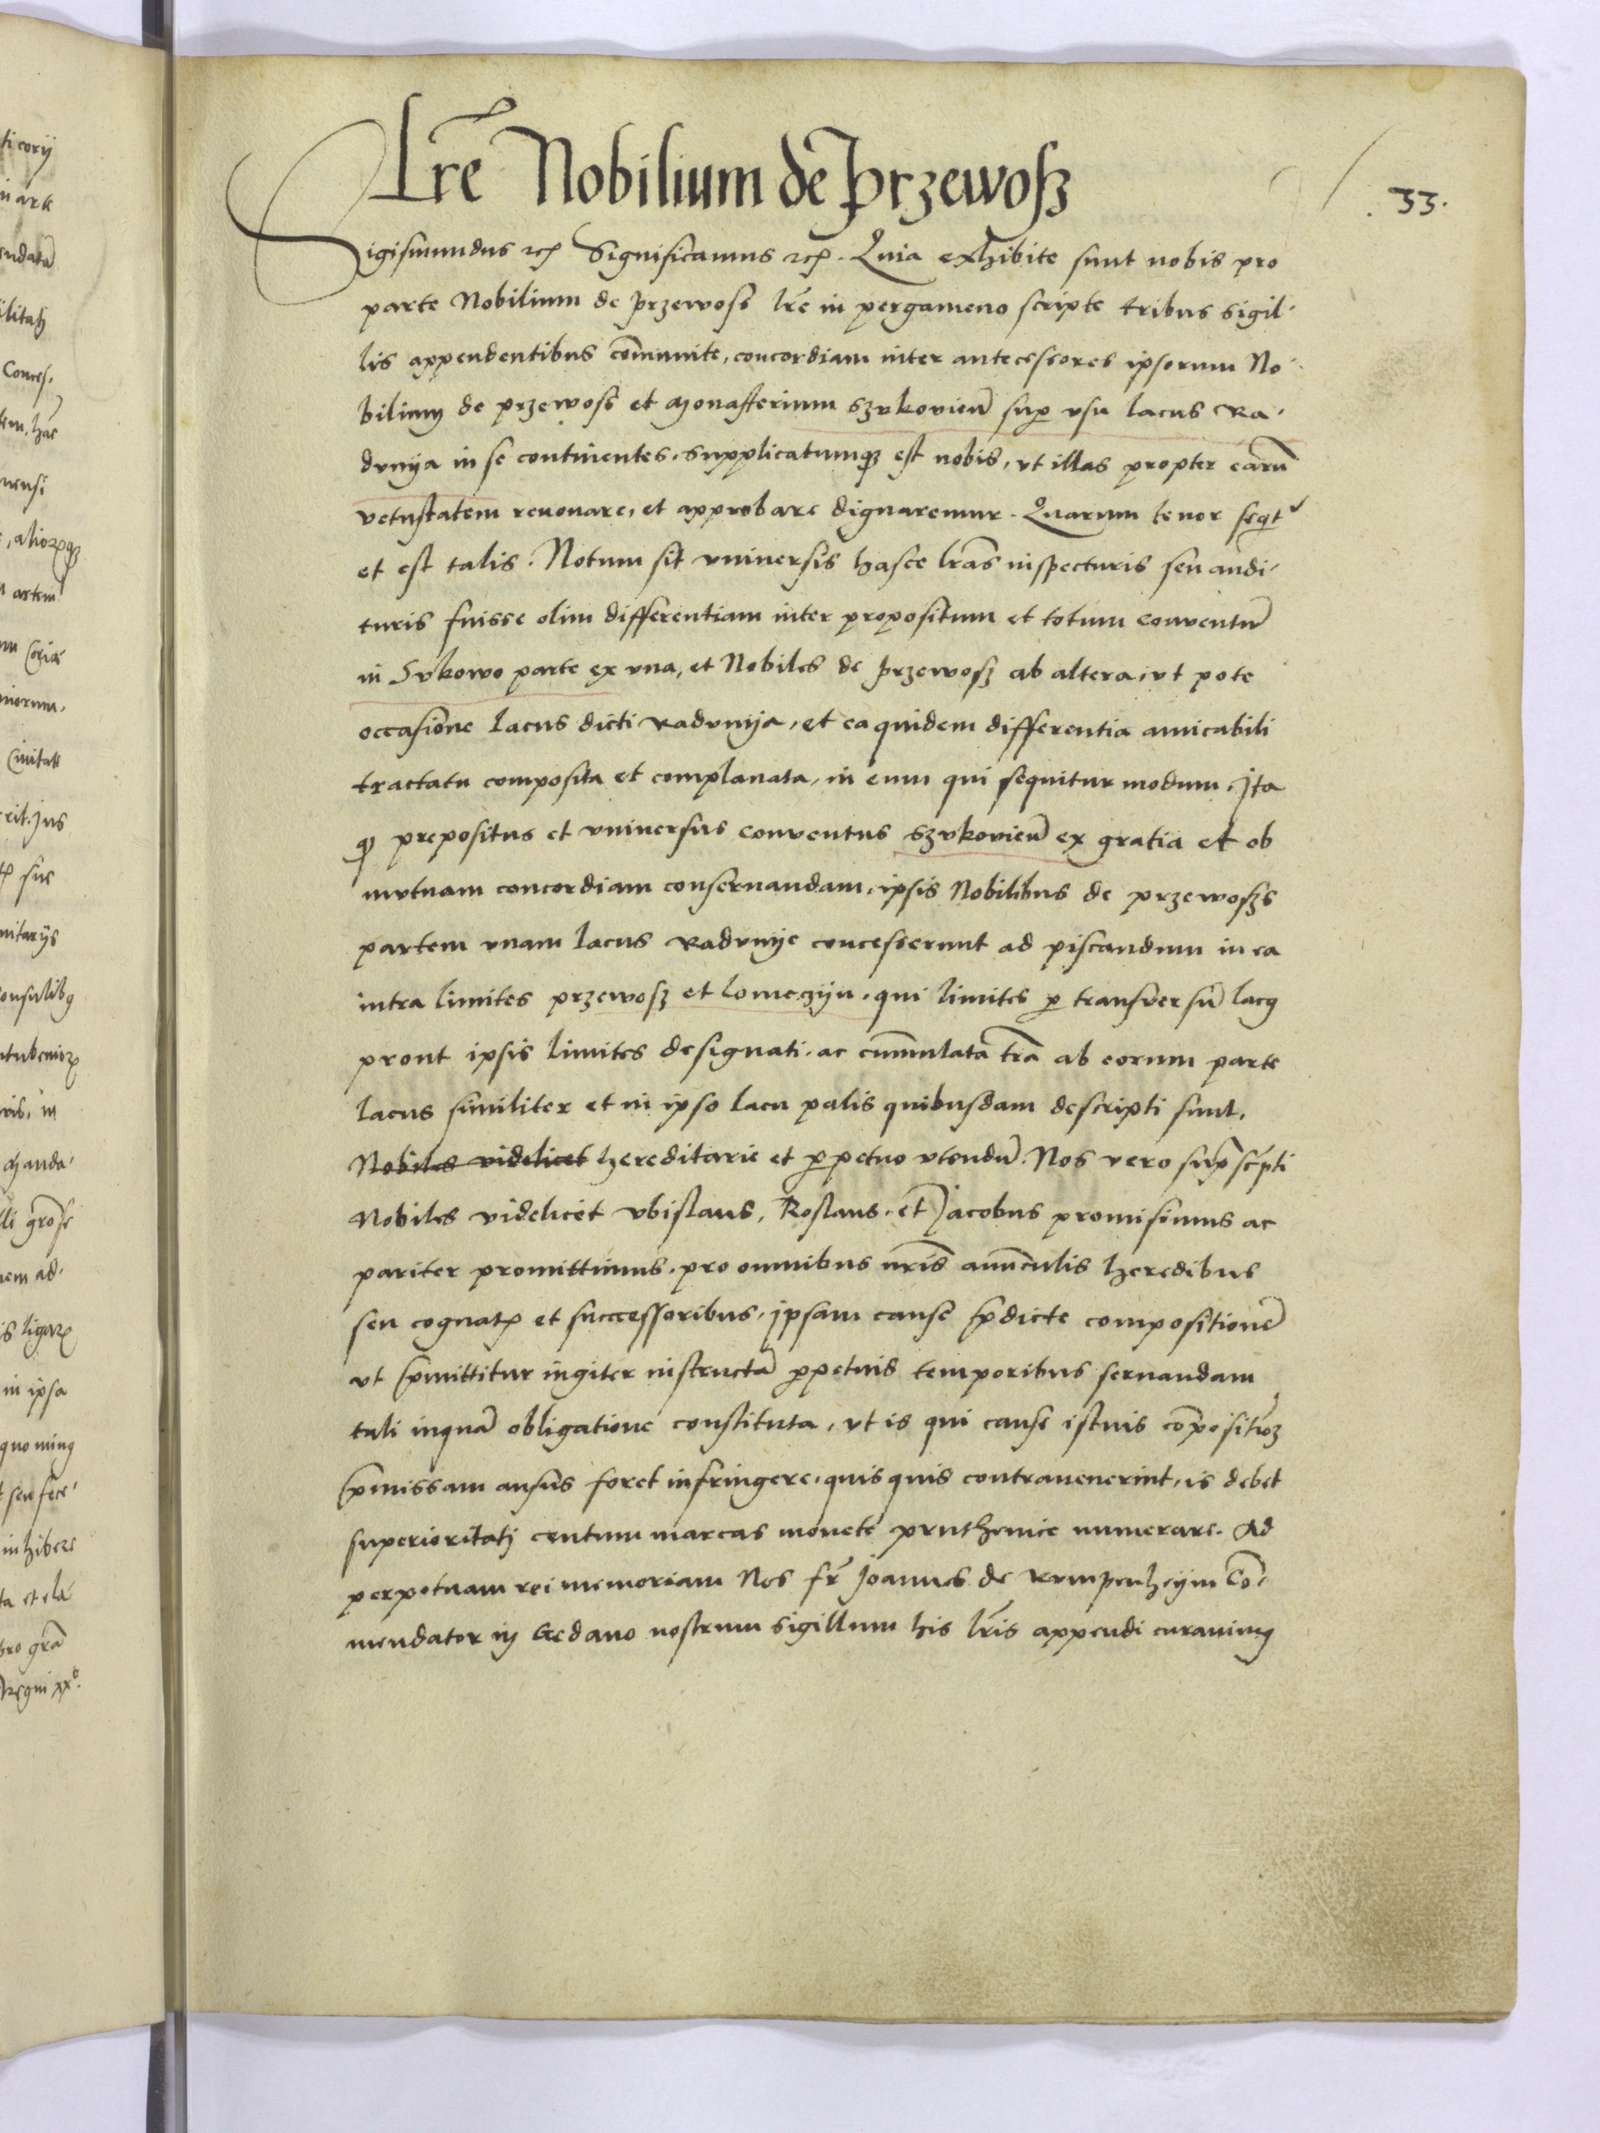 Lrē Nobilium de Przewosz
33.
Sigismundus etc Significamus etc. Quia exhibite sunt nobis pro
parte Nobilium de Przewosz lrē in pergameno scripte tribus sigil-
lis appendentibus cōmunite, concordiam inter antecessores ipsorum No-
bilium de przewosz et Monasterium Szvkovien̄ sup vsu lacus Ra-
dvnya in se continentes. supplicatumq3 est nobis, vt illas propter earū
vetustatem renovare, et approbare dignaremur. Quarum tenor seqt
et est talis. Notum sit vniversis hasce lrās inspecturis seu audi-
turis fuisse olim differentiam inter propositum et totum conventū
in Svkowo parte ex vna, et Nobiles de Przewosz ab altera, vt pote
occasione lacus dicti Radvnija, et ea quidem differentia amicabili
tractatu composita et complanata, in eum qui sequitur modum. Ita
q prepositus et vniversus conventus Szvkovien̄ ex gratia et ob
mvtuam concordiam conservandam, ipsis Nobilibus de przewoszs
partem vnam lacus Radvnije concesserunt ad piscandum in ea
intra limites przewosz et Lomezyn, qui limites p transversū lacq
prout ipsis limites designati, ac cum̄ulata trā ab eorum parte
lacus similiter et in ipso lacu palis quibusdam descripti sunt.
Nobiles videlicet hereditarie et ppetuo vtendū. Nos vero supscripti
Nobiles videlicet vbislaus, Roslaus, et Jacobus promisimus ac
pariter promittimus, pro omnibus nrīs avunculis heredibus
seu cognatp et successoribus, ipsam cause pdicte compositionē
vt pmittitur ingiter instructā ppetuis temporibus servandam
tali inquā obligatione constituta, vt is qui cause istuis compositioz
pmissam ausus foret infringere, quis quis contravenerint, is debet
superioritati centum marcas monete pruthenice numerare. Ad
perpetuam rei memoriam Nos fr̄ Joannes de Rvmpenheym Cō-
mendator in Gedano nostrum sigillum his lrīs appendi curavimq